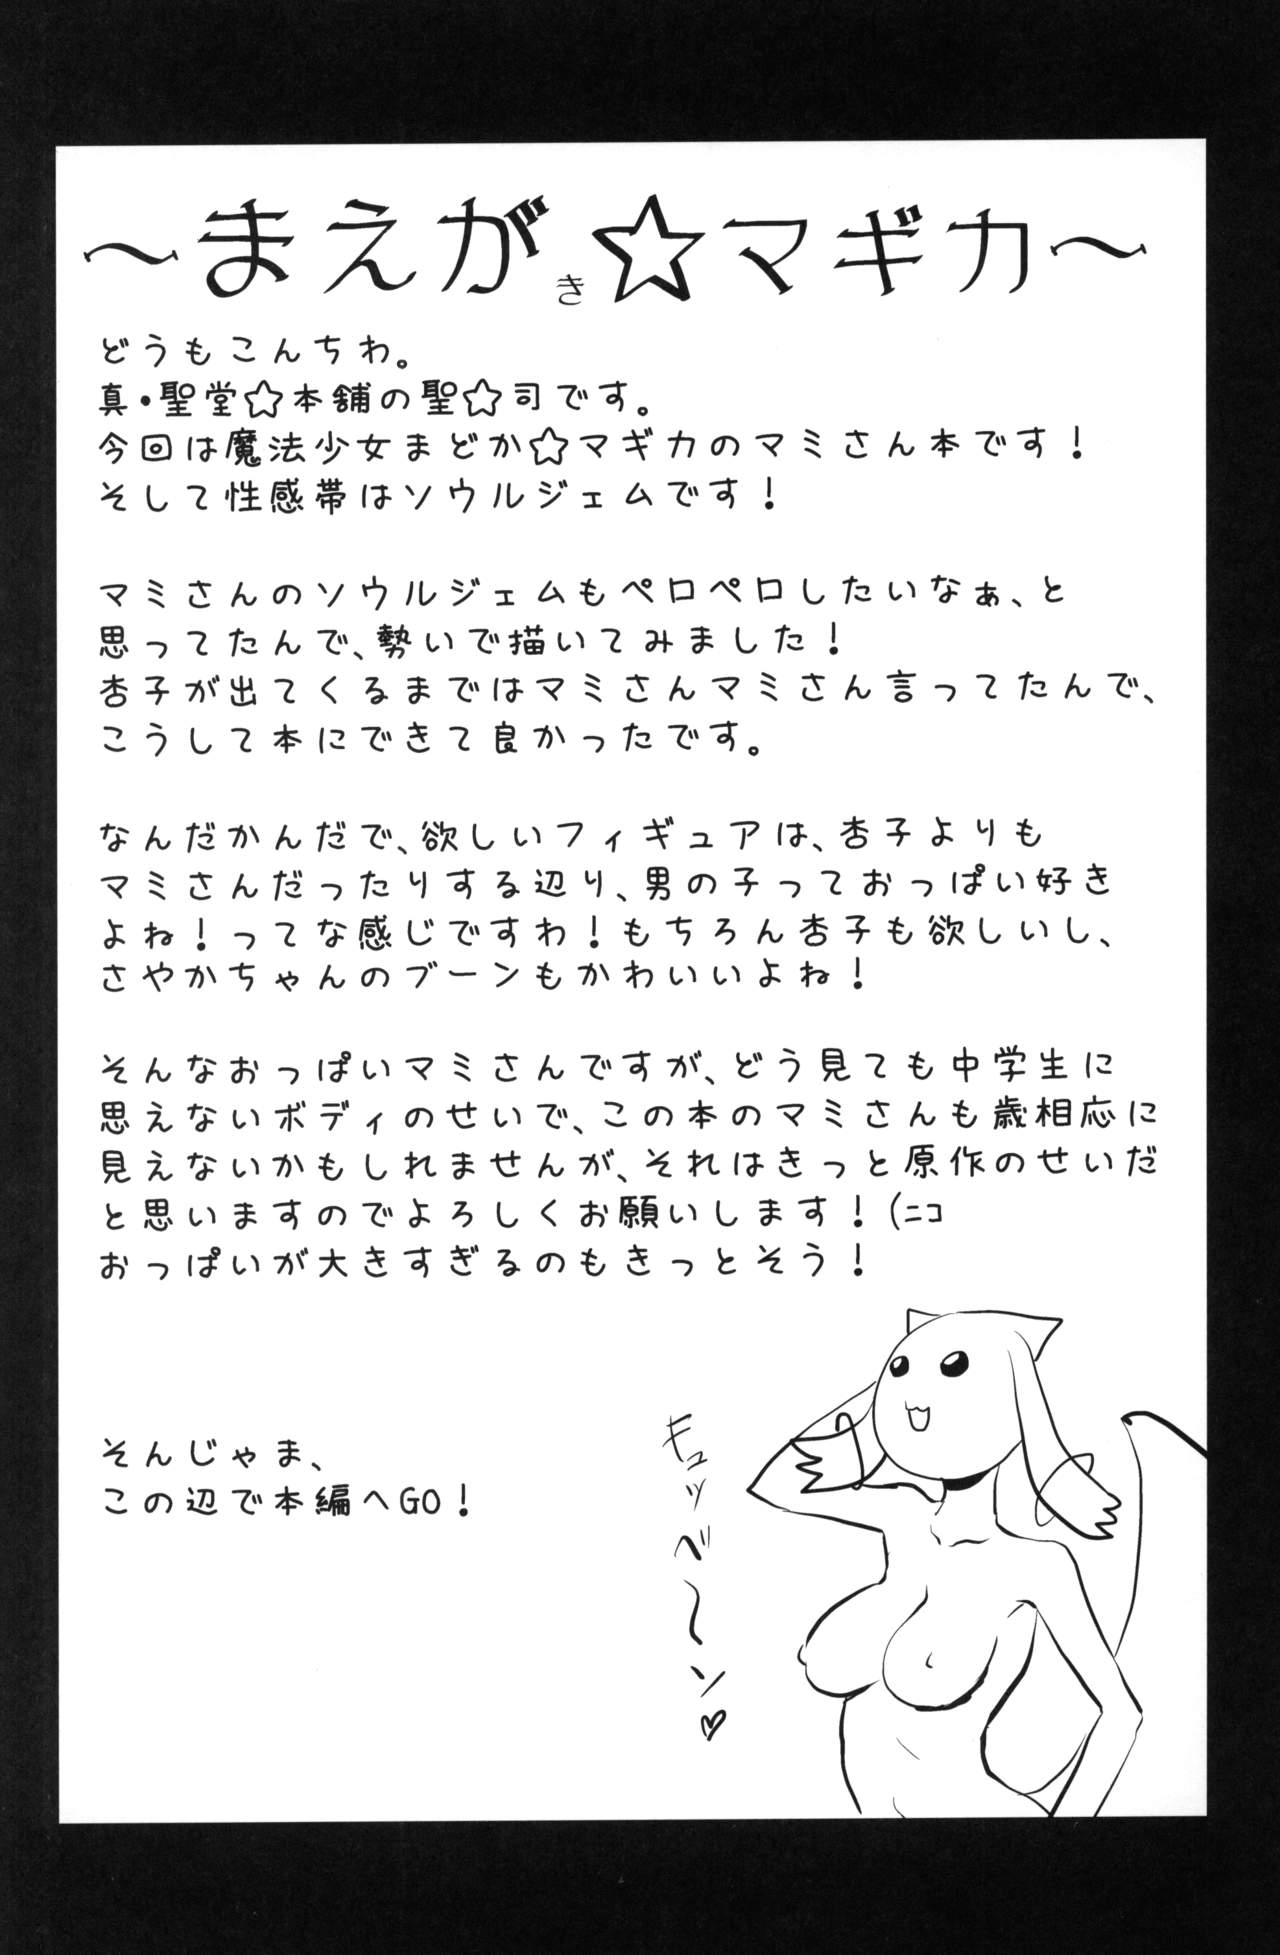 ～まえがき☆マギカ～
どうもこんちわ。
真・聖堂☆本舗の聖☆司です。
今回は魔法少女まどか☆マギカのマミさん本です！
そして性感帯はソウルジェムです！
マミさんのソウルジェムもペロペロしたいなぁ、と
思ってたんで、勢いで描いてみました！
杏子が出てくるまではマミさんマミさん言ってたんで、
こうして本にできて良かったです。
なんだかんだで、欲しいフィギュアは、杏子よりも
マミさんだったりする辺り、男の子っておっぱい好き
よね！ってな感じですわ！もちろん杏子も欲しいし、
さやかちゃんのブーンもかわいいよね！
そんなおっぱいマミさんですが、どう見ても中学生に
思えないボディのせいで、この本のマミさんも歳相応に
見えないかもしれませんが、それはきっと原作のせいだ
と思いますのでよろしくお願いします！(ﾆｺ
おっぱいが大きすぎるのもきっとそう！
そんじゃま、
この辺で本編へGO！
キュッベ～ン♡